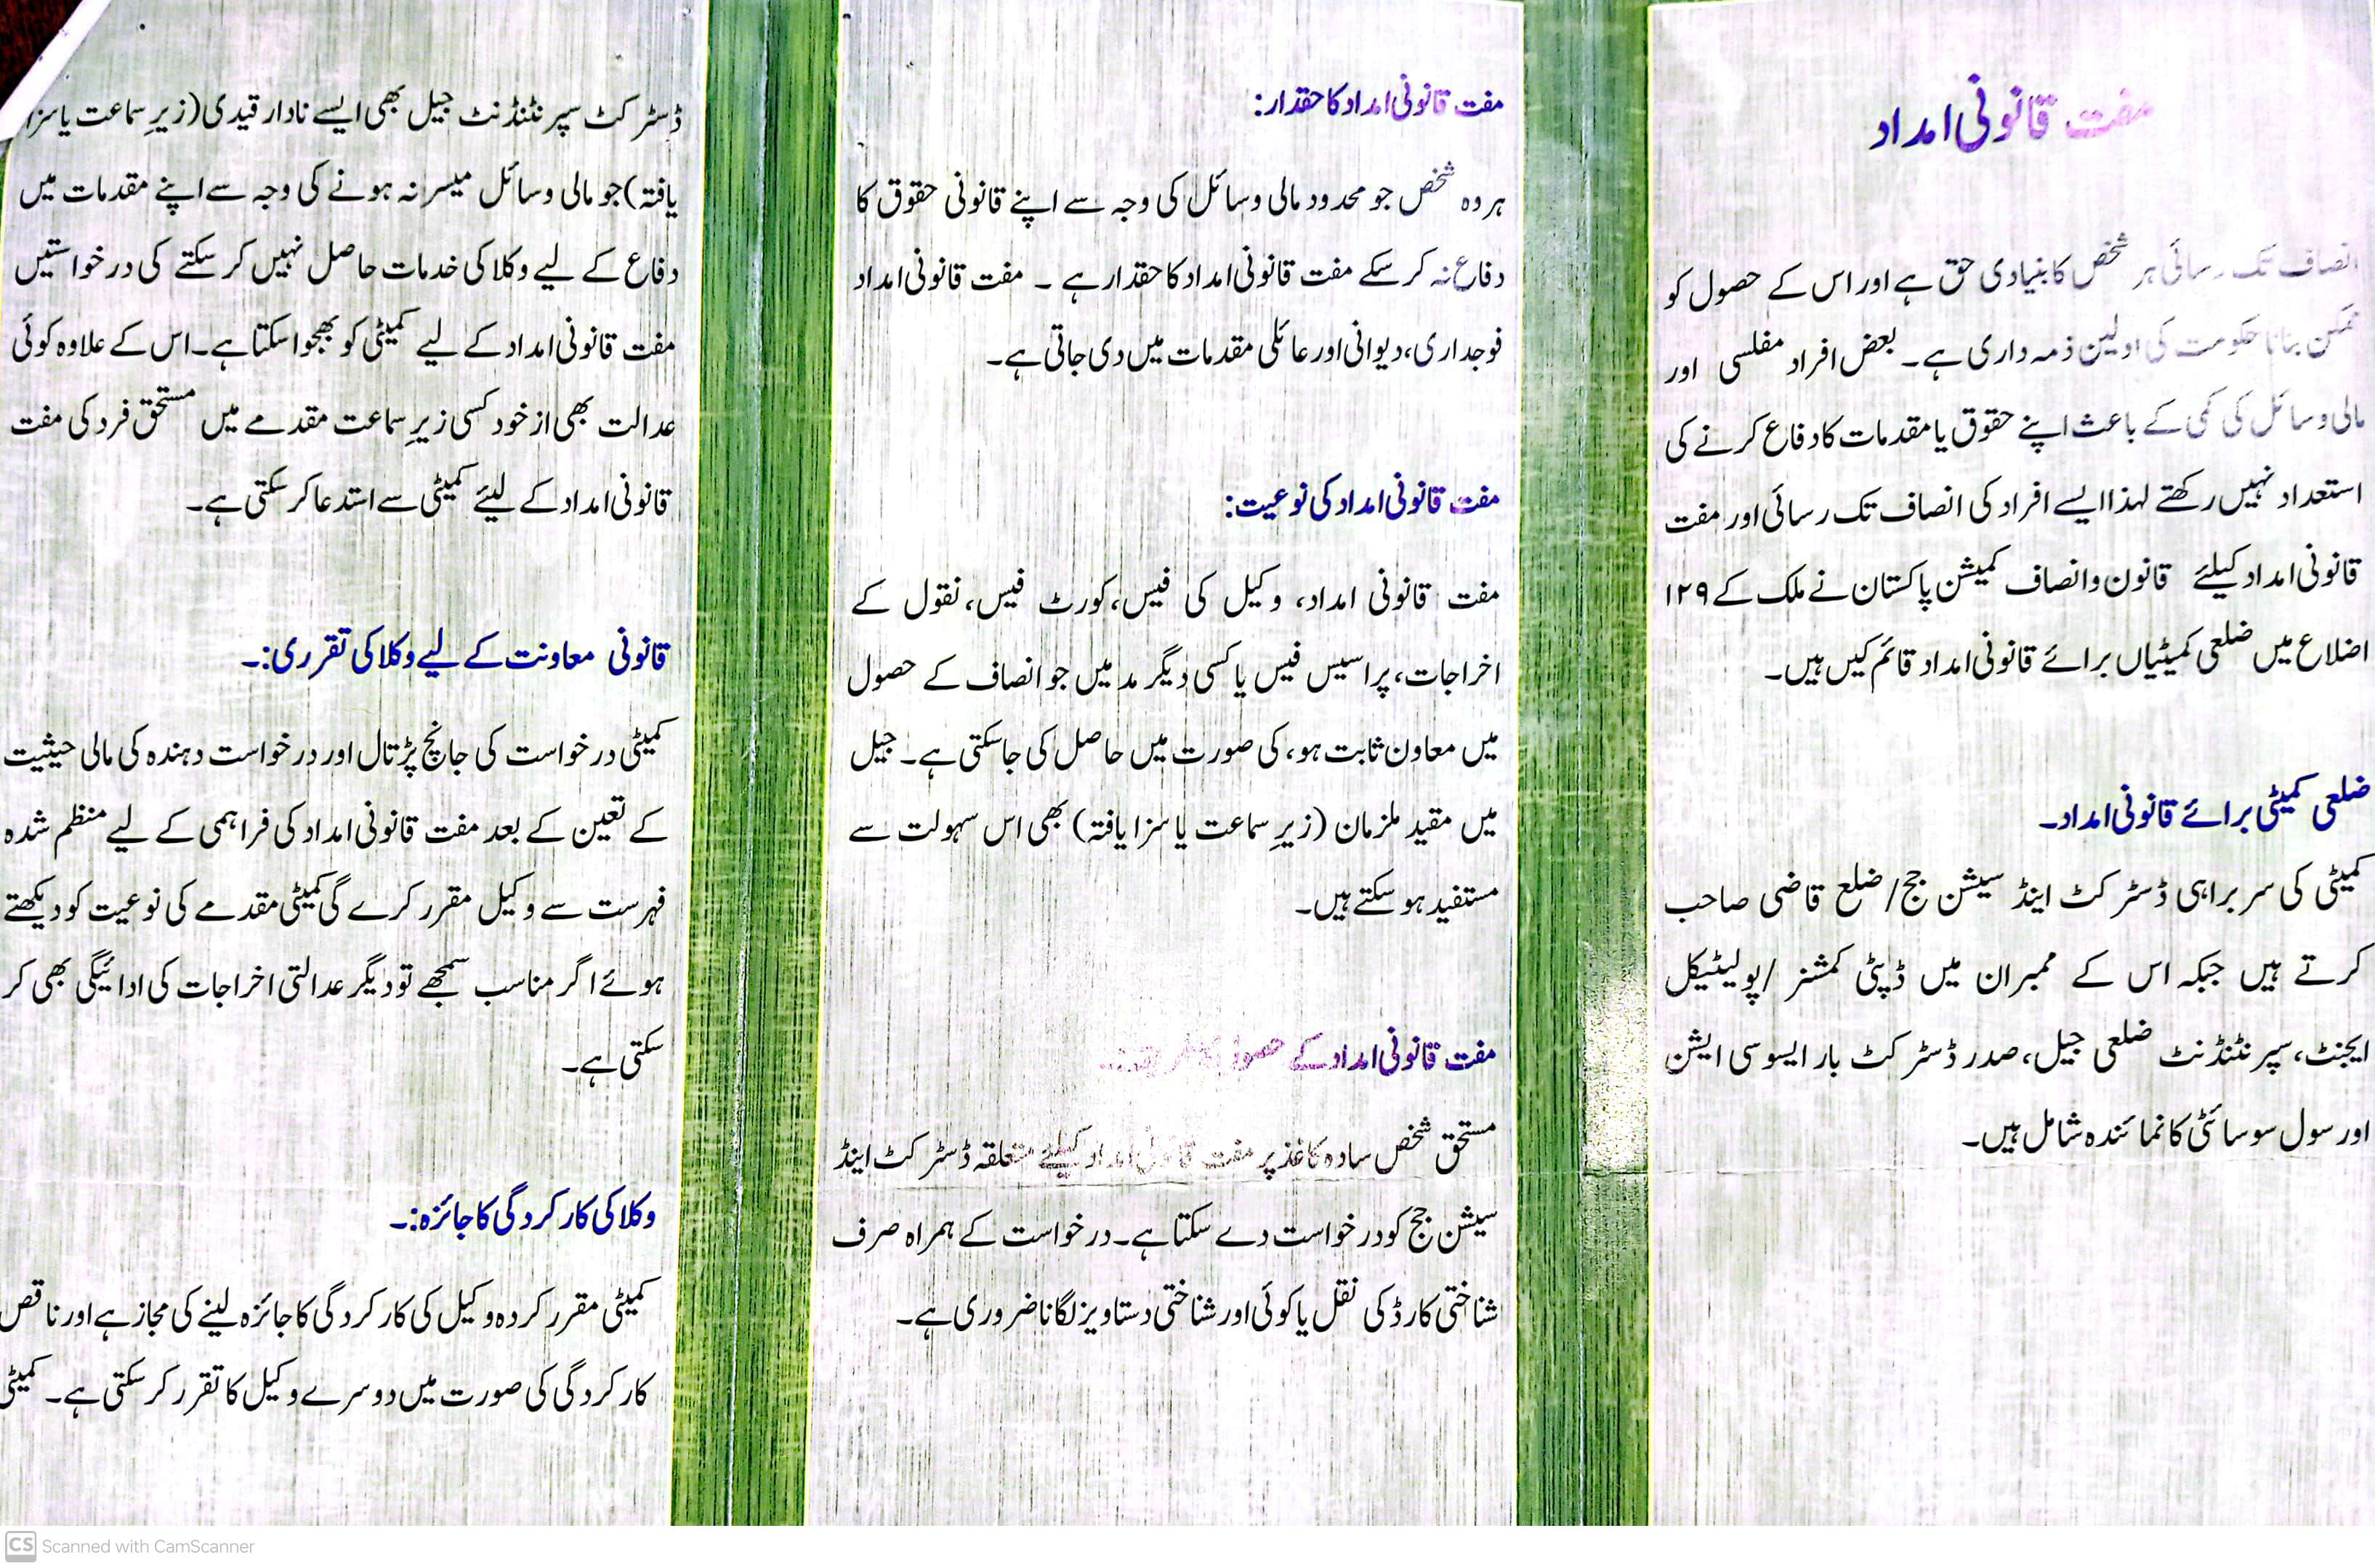 مفت قانونی امداد
انصاف تک رسائی ہر شخص کا بنیادی حق ہے اور اس کے حصول کو
ممکن بنانا حکومت کی اولین ذمہ داری ہے۔ بعض افراد مفلسی اور
مالی وسائل کی کمی کے باعث اپنے حقوق یا مقدمات کا دفاع کرنے کی
استعداد نہیں رکھتے لہذا ایسے افراد کی انصاف تک رسائی اور مفت
قانونی امداد کیلئے قانون و انصاف کمیشن پاکستان نے ملک کے ۱۲۹
اضلاع میں ضلعی کمیٹیاں برائے قانونی امداد قائم کیں ہیں۔
ضلعی کمیٹی برائے قانونی امداد۔
کمیٹی کی سربراہی ڈسٹرکٹ اینڈ سیشن جج/ضلع قاضی صاحب
کرتے ہیں جبکہ اس کے ممبران میں ڈپٹی کمشنر /پولیٹیکل
ایجنٹ، سپرنٹنڈنٹ ضلعی جیل، صدر ڈسٹرکٹ بار ایسوسی ایشن
اور سول سوسائٹی کا نمائندہ شامل ہیں۔
مفت قانونی امداد کا حقدار:
ہر وہ شخص جو محدود مالی وسائل کی وجہ سے اپنے قانونی حقوق کا
دفاع نہ کر سکے مفت قانونی امداد کا حقدار ہے ۔ مفت قانونی امداد
فوجداری، دیوانی اور عائلی مقدمات میں دی جاتی ہے۔
مفت قانونی امداد کی نوعیت:
مفت قانونی امداد، وکیل کی فیس، کورٹ فیس، نقول کے
اخراجات، پراسیس فیس یا کسی دیگر مد میں جو انصاف کے حصول
میں معاون ثابت ہو، کی صورت میں حاصل کی جاسکتی ہے۔ جیل
میں مقید ملزمان (زیرِ سماعت یا سزا یافتہ) بھی اس سہولت سے
مستفید ہو سکتے ہیں۔
مفت قانونی امداد کے حصول کا
مستحق شخص سادہ کاغذ پر مفت قانونی امداد کیلئے متعلقہ ڈسٹرکٹ اینڈ
سیشن جج کو درخواست دے سکتا ہے۔ درخواست کے ہمراہ صرف
شناختی کارڈ کی نقل یا کوئی اور شناختی دستاویز لگانا ضروری ہے۔
ڈسٹرکٹ سپرنٹنڈنٹ جیل بھی ایسے نادار قیدی (زیرِ سماعت یا سزا
یافتہ) جو مالی وسائل میسر نہ ہونے کی وجہ سے اپنے مقدمات میں
دفاع کے لیے وکلا کی خدمات حاصل نہیں کر سکتے کی درخواستیں
مفت قانونی امداد کے لیے کمیٹی کو بھجوا سکتا ہے۔ اس کے علاوہ کوئی
عدالت بھی از خود کسی زیرِ سماعت مقدمے میں مستحق فرد کی مفت
قانونی امداد کے لیئے کمیٹی سے استدعا کر سکتی ہے۔
قانونی معاونت کے لیے وکلا کی تقرری:۔
کمیٹی درخواست کی جانچ پڑتال اور درخواست دہندہ کی مالی حیثیت
کے تعین کے بعد مفت قانونی امداد کی فراہمی کے لیے منظم شدہ
فہرست سے وکیل مقرر کرے گی کمیٹی مقدمے کی نوعیت کو دیکھتے
ہوئے اگر مناسب سمجھے تو دیگر عدالتی اخراجات کی ادائیگی بھی کر
سکتی ہے۔
وکلا کی کارکردگی کا جائزہ:۔
کمیٹی مقرر کردہ وکیل کی کارکردگی کا جائزہ لینے کی مجاز ہے اور ناقص
کارکردگی کی صورت میں دوسرے وکیل کا تقرر کر سکتی ہے۔ کمیٹی
CS Scanned with CamScanner